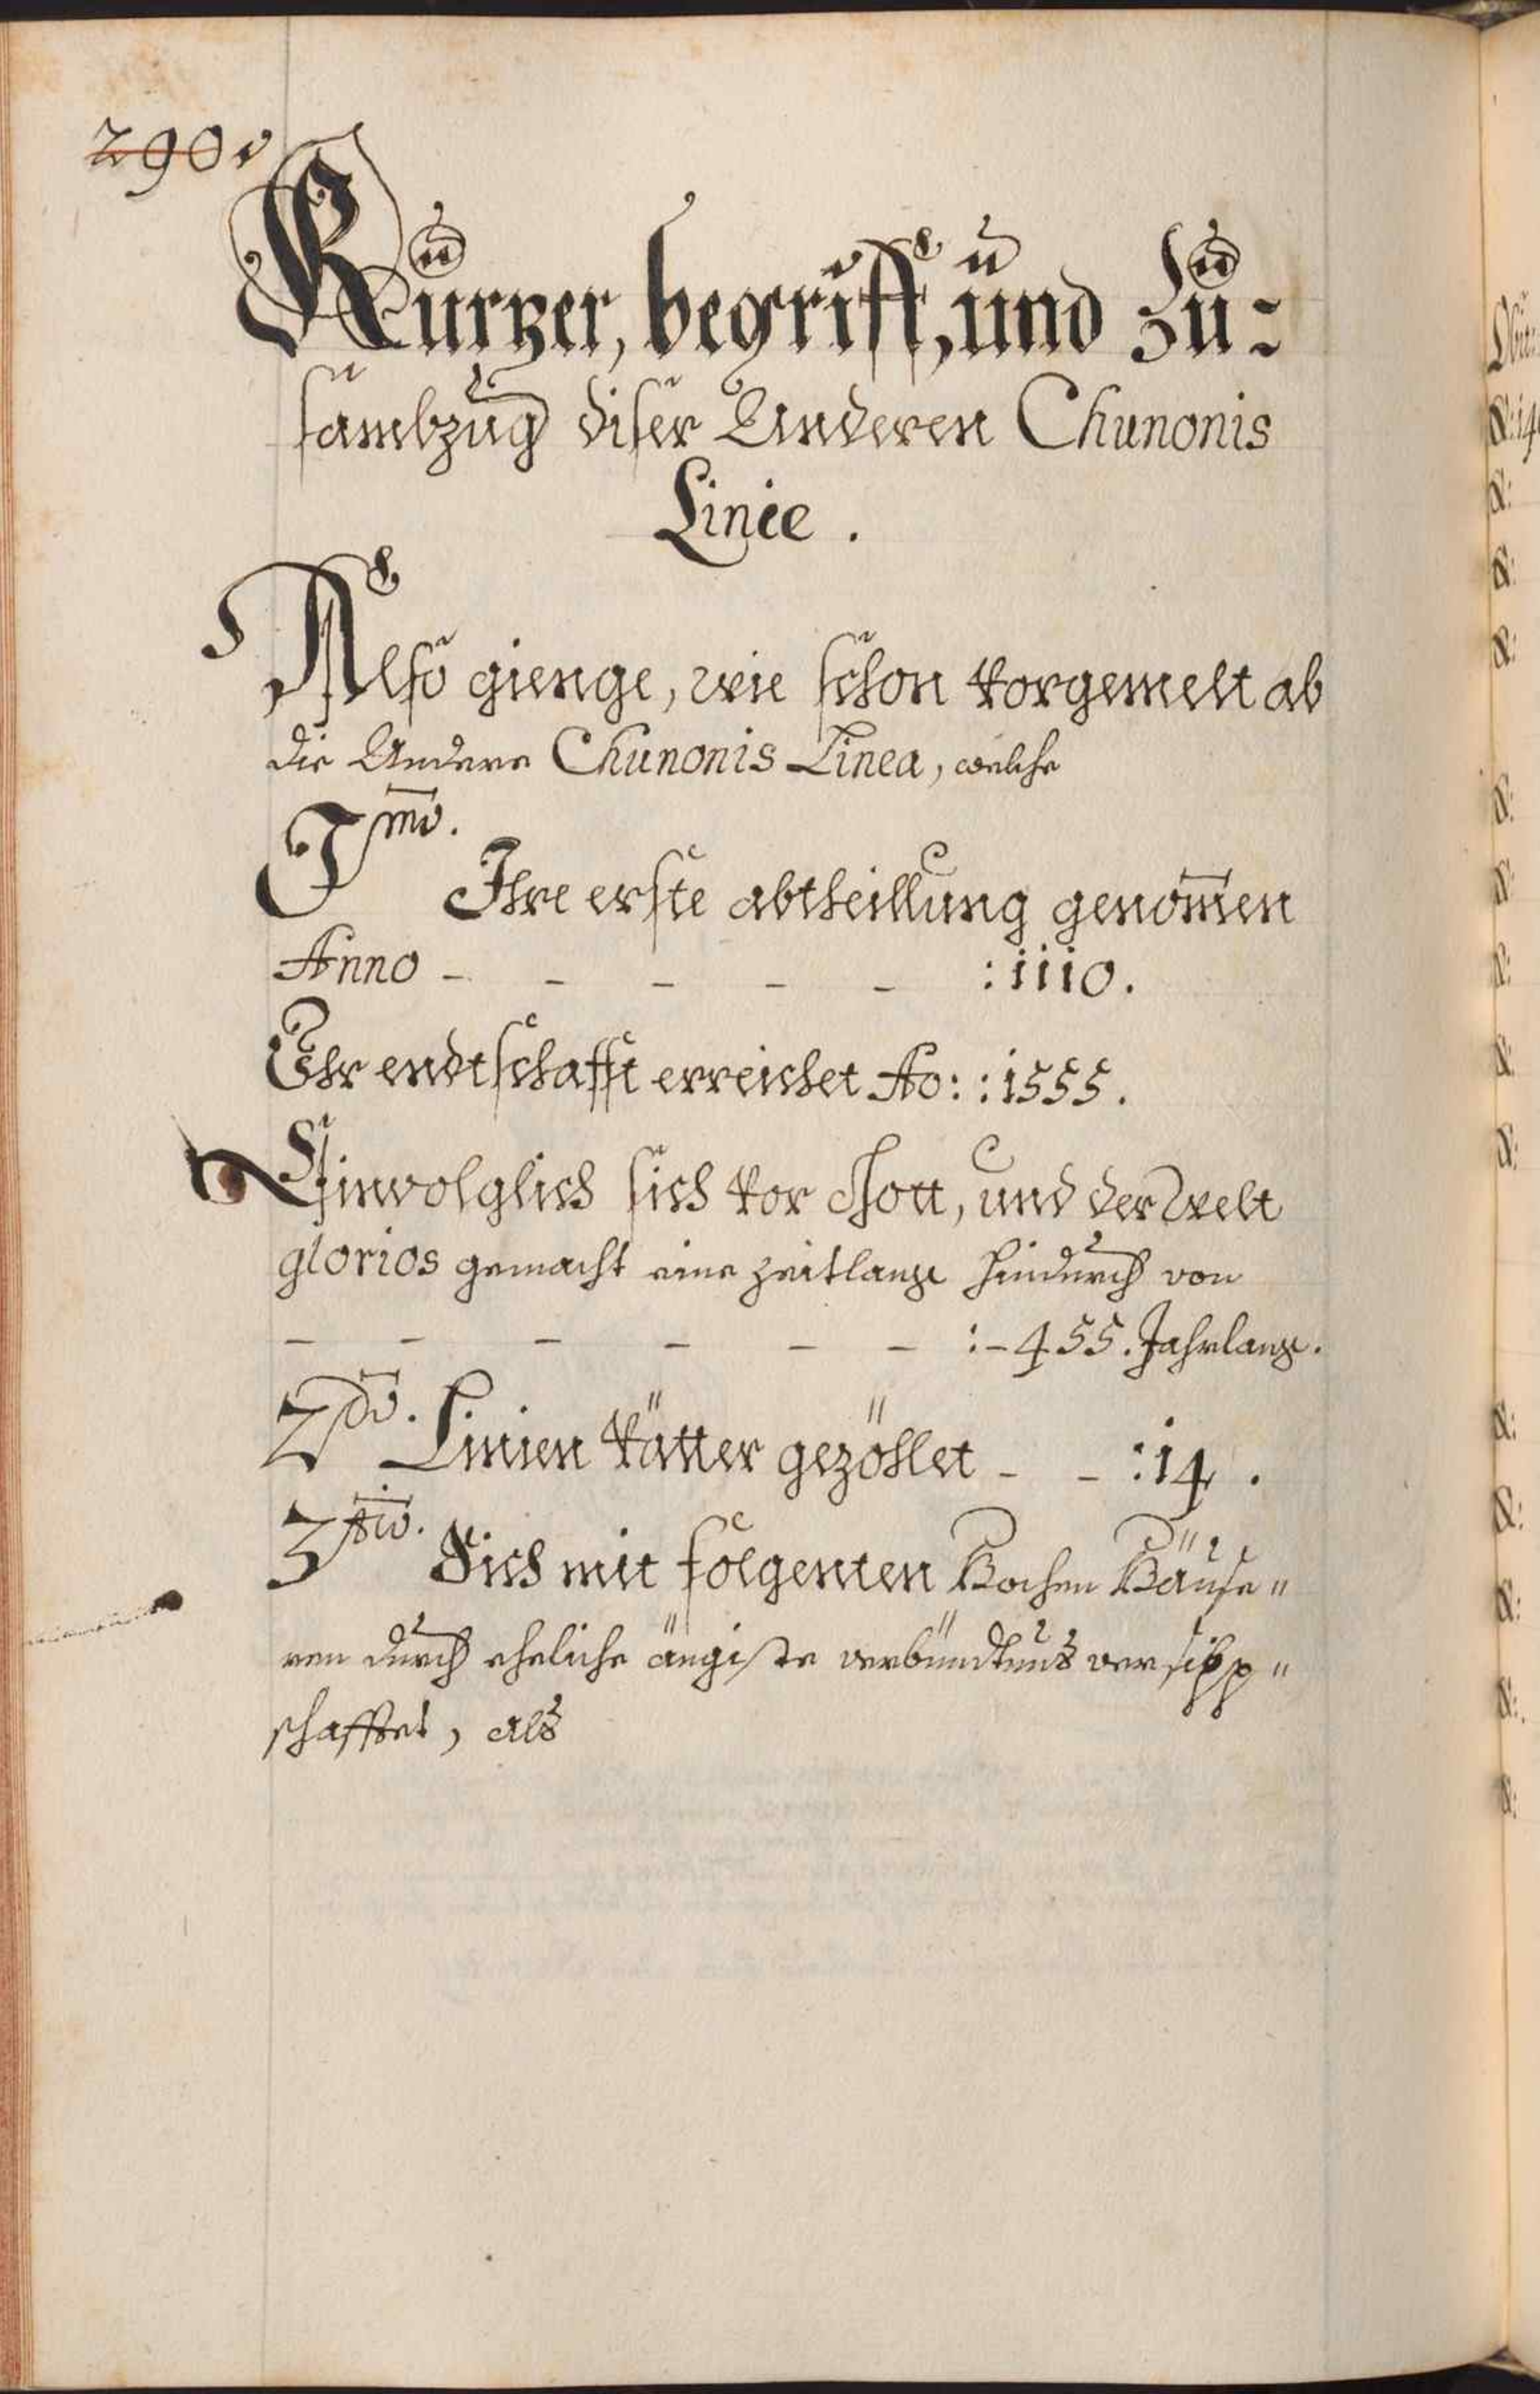 290v
Kurtzer, begriff, und Zu=
sambzug diser Anderen Chunonis
Linie.
Also gienge, wie schon vorgemelt ab
die Andere Chunonis Linea, welche
Imo.
Ihre erste abtheillung genom̅en
Anno - - - - - :1110.
Ihr endtschafft erreichet Ao: :1555.
Einvolglich sich vor Gott, und der Welt
glorios gemacht eine zeitlang hindurch von
- - - - - - :-455. Jahrlang.
2do. Linien Vätter gezöhlet - - :14.
3tio. Sich mit folgenten Hochen Häuse"
ren durch eheliche ängiste verbündtnus versipp"
schafftet, als